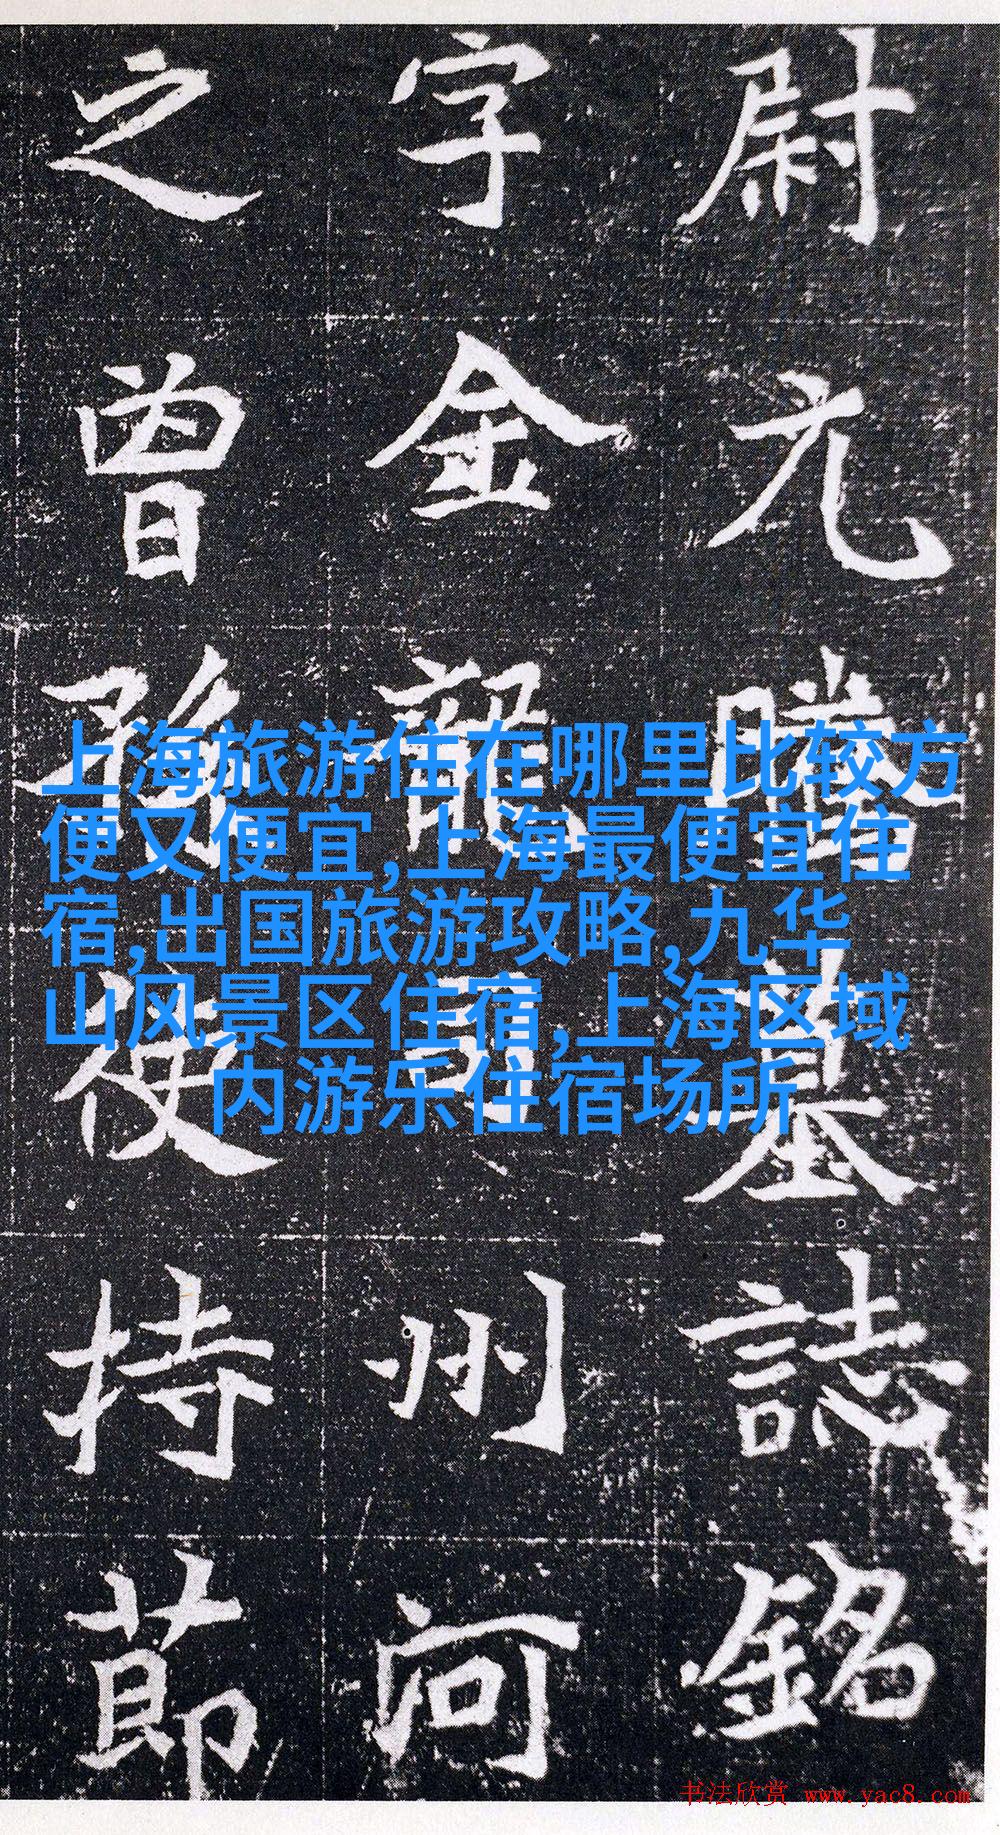 尉元騰墓誌銘
字金龍司州河
之曾孫使持莭
上海旅游住在哪里比较方
便又便宜,上海最便宜住
宿,出国旅游攻略,九华
山风景区住宿,上海区域
内游乐住宿场所
书法欣赏 www.yac8.com